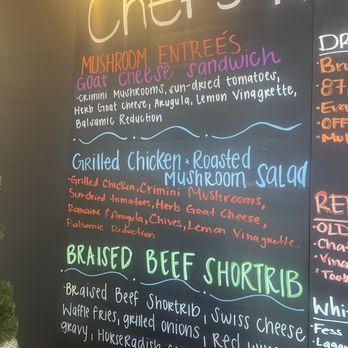 Chef's
MUSHROOM ENTREÉS
Goat Cheese Sandwich
·Crimini Mushrooms, sun-dried tomatoes,
Herb Goat cheese, Arugula, Lemon Vinagrette,
Balsamic Reduction
Grilled Chicken & Roasted
Mushroom Salad
·Grilled Chicken, Crimini Mushrooms,
Sun-dried tomatoes, Herb Goat Cheese,
Romaine & Arugula, Chives, Lemon Vinagrette,
Balsamic Reduction
BRAISED BEEF SHORTRIB
·Braised Beef Shortrib, Swiss cheese
Waffle fries, grilled onions, Red Wine
gravy, Horseradish
DR
·Bru
·87
·Eva
·OFF
·Mul
RE
·OLD
·Cha
·Vin
·Toot
Whi
Fess
Lagen